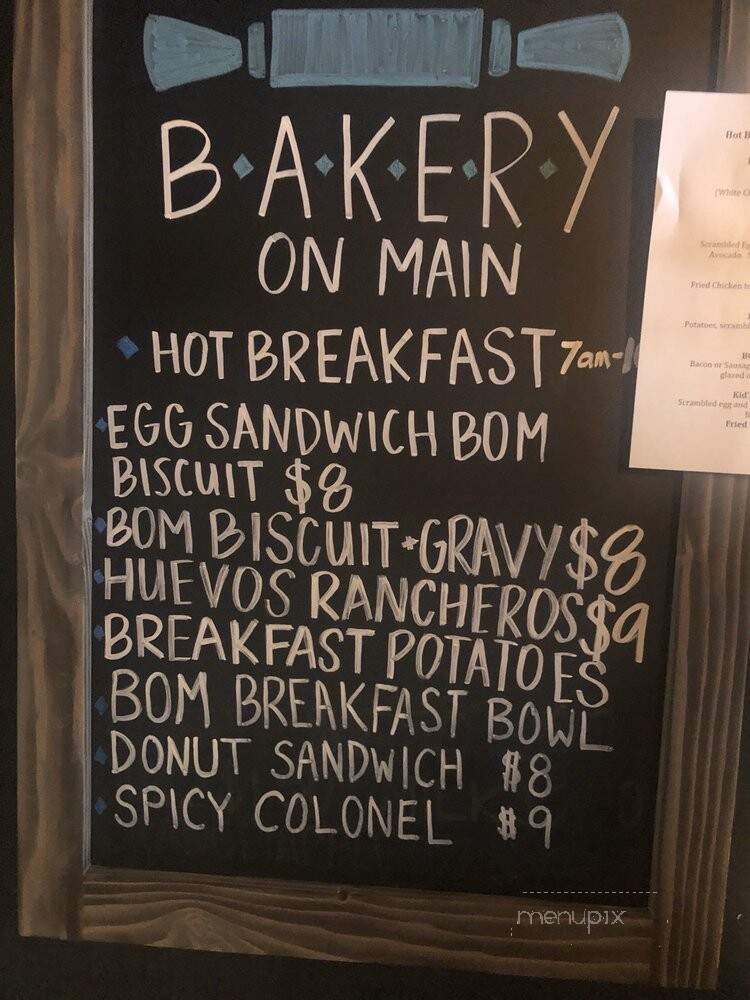 B·A·K·E·R·Y
ON MAIN
HOT BREAKFAST 7am-
EGG SANDWICH BOM
BISCUIT $8
BOM BISCUIT + GRAVY $8
HUEVOS RANCHEROS $9
BREAKFAST POTATOES
BOM BREAKFAST BOWL
DONUT SANDWICH $8
SPICY COLONEL $9
Hot B
(White C
Scrambled Eg
Avocado.
Fried Chicken t
Potatoes, scramb
Bacon or Sausag
glazed
Kid'
Scrambled egg and
Fried
menupix